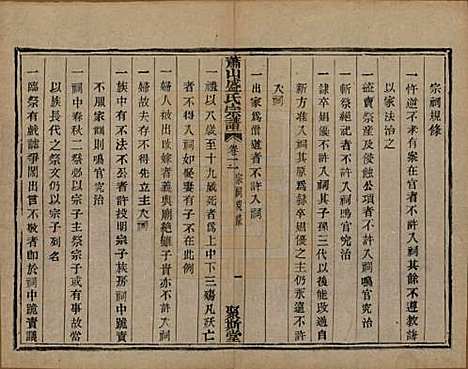 宗祠規條
一忤逆不孝有據者不許入祠其餘不遵敎訓
以家法治之
一盜賣祭產及侵蝕公項者不許入祠鳴官究治
一斬祭絕祀者不許入祠鳴官究治
一隸卒娼優不許入祠其子孫三代以後能改過自
新方准入祠其原爲隸卒娼優之主仍永遠不許
入祠
一出家爲僧道者不許入祠
蕭山盛氏宗譜
卷二
宗祠規條
一
聚斯堂
一禮以八歲至十九歲死者爲上中下三殤凡夭亡
者不許入祠
一婦人被出改嫁者義與廟絕雖子貴亦不可入祠此例
一婦故夫存者不得先立主入祠
一族中有不法不公者許投明宗子族長祠中跪責
不服家規則鳴官究治
一祠中春秋二祭必以宗子主祭宗子或有事故當
以族長代之祭文仍以宗子列名
一臨祭有戲謔爭鬧出言不遜者卽於祠中跪責議